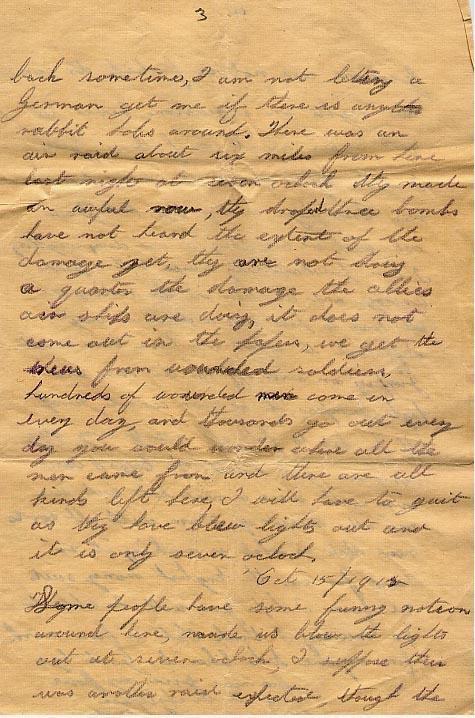 3
back sometimes, I am not letting a
German get me if there is any
rabbit hols around. There was an
air raid about six miles from here
last night at seven oclock they made
an awful row, they droped three bombs
have not heard the extent of the
damage yet, they are not doing
a quarter the damage the allies
air ships are doing, it does not
come out in the papers, we get the
news from wounded soldiers,
hundreds of wounded men come in
every day and thousands go out every
day you would wonder where all the
men came from and there are all
kinds left here, I will have to quit
as they have blew lights out and
it is only seven oclock.
Oct 15/1915
Some people have some funny notion
around here, made us blow the lights
out at seven oclock, I suppose there
was another raid expected though the